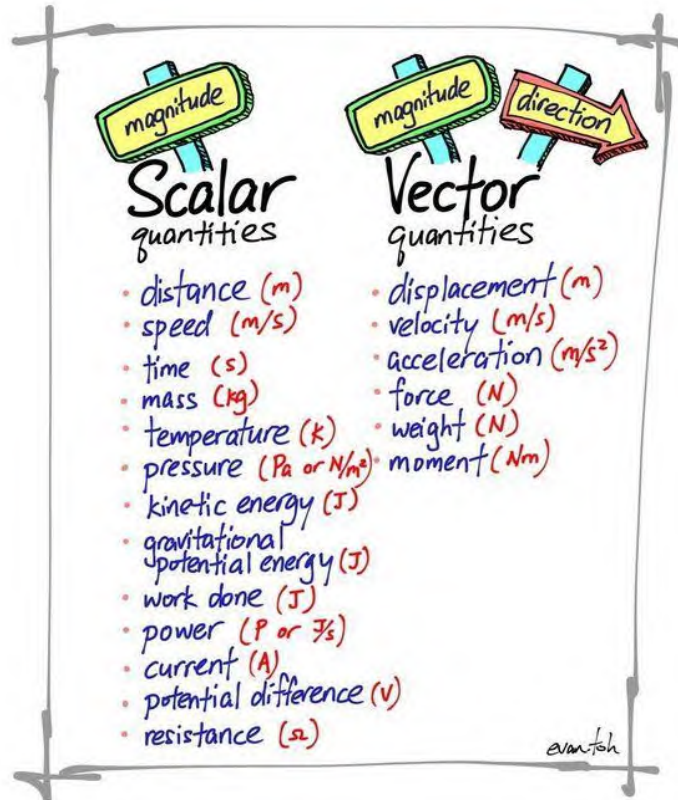 magnitude
Scalar
quantities
• distance (m)
• speed (m/s)
• time (s)
• mass (kg)
• temperature (K)
• pressure (Pa or N/m²)
• kinetic energy (J)
• gravitational
potential energy (J)
• work done (J)
• power (P or J/s)
• current (A)
• potential difference (V)
• resistance (Ω)
magnitude
direction
Vector
quantities
• displacement (m)
• velocity (m/s)
• acceleration (m/s²)
• force (N)
• weight (N)
• moment (Nm)
evantoh